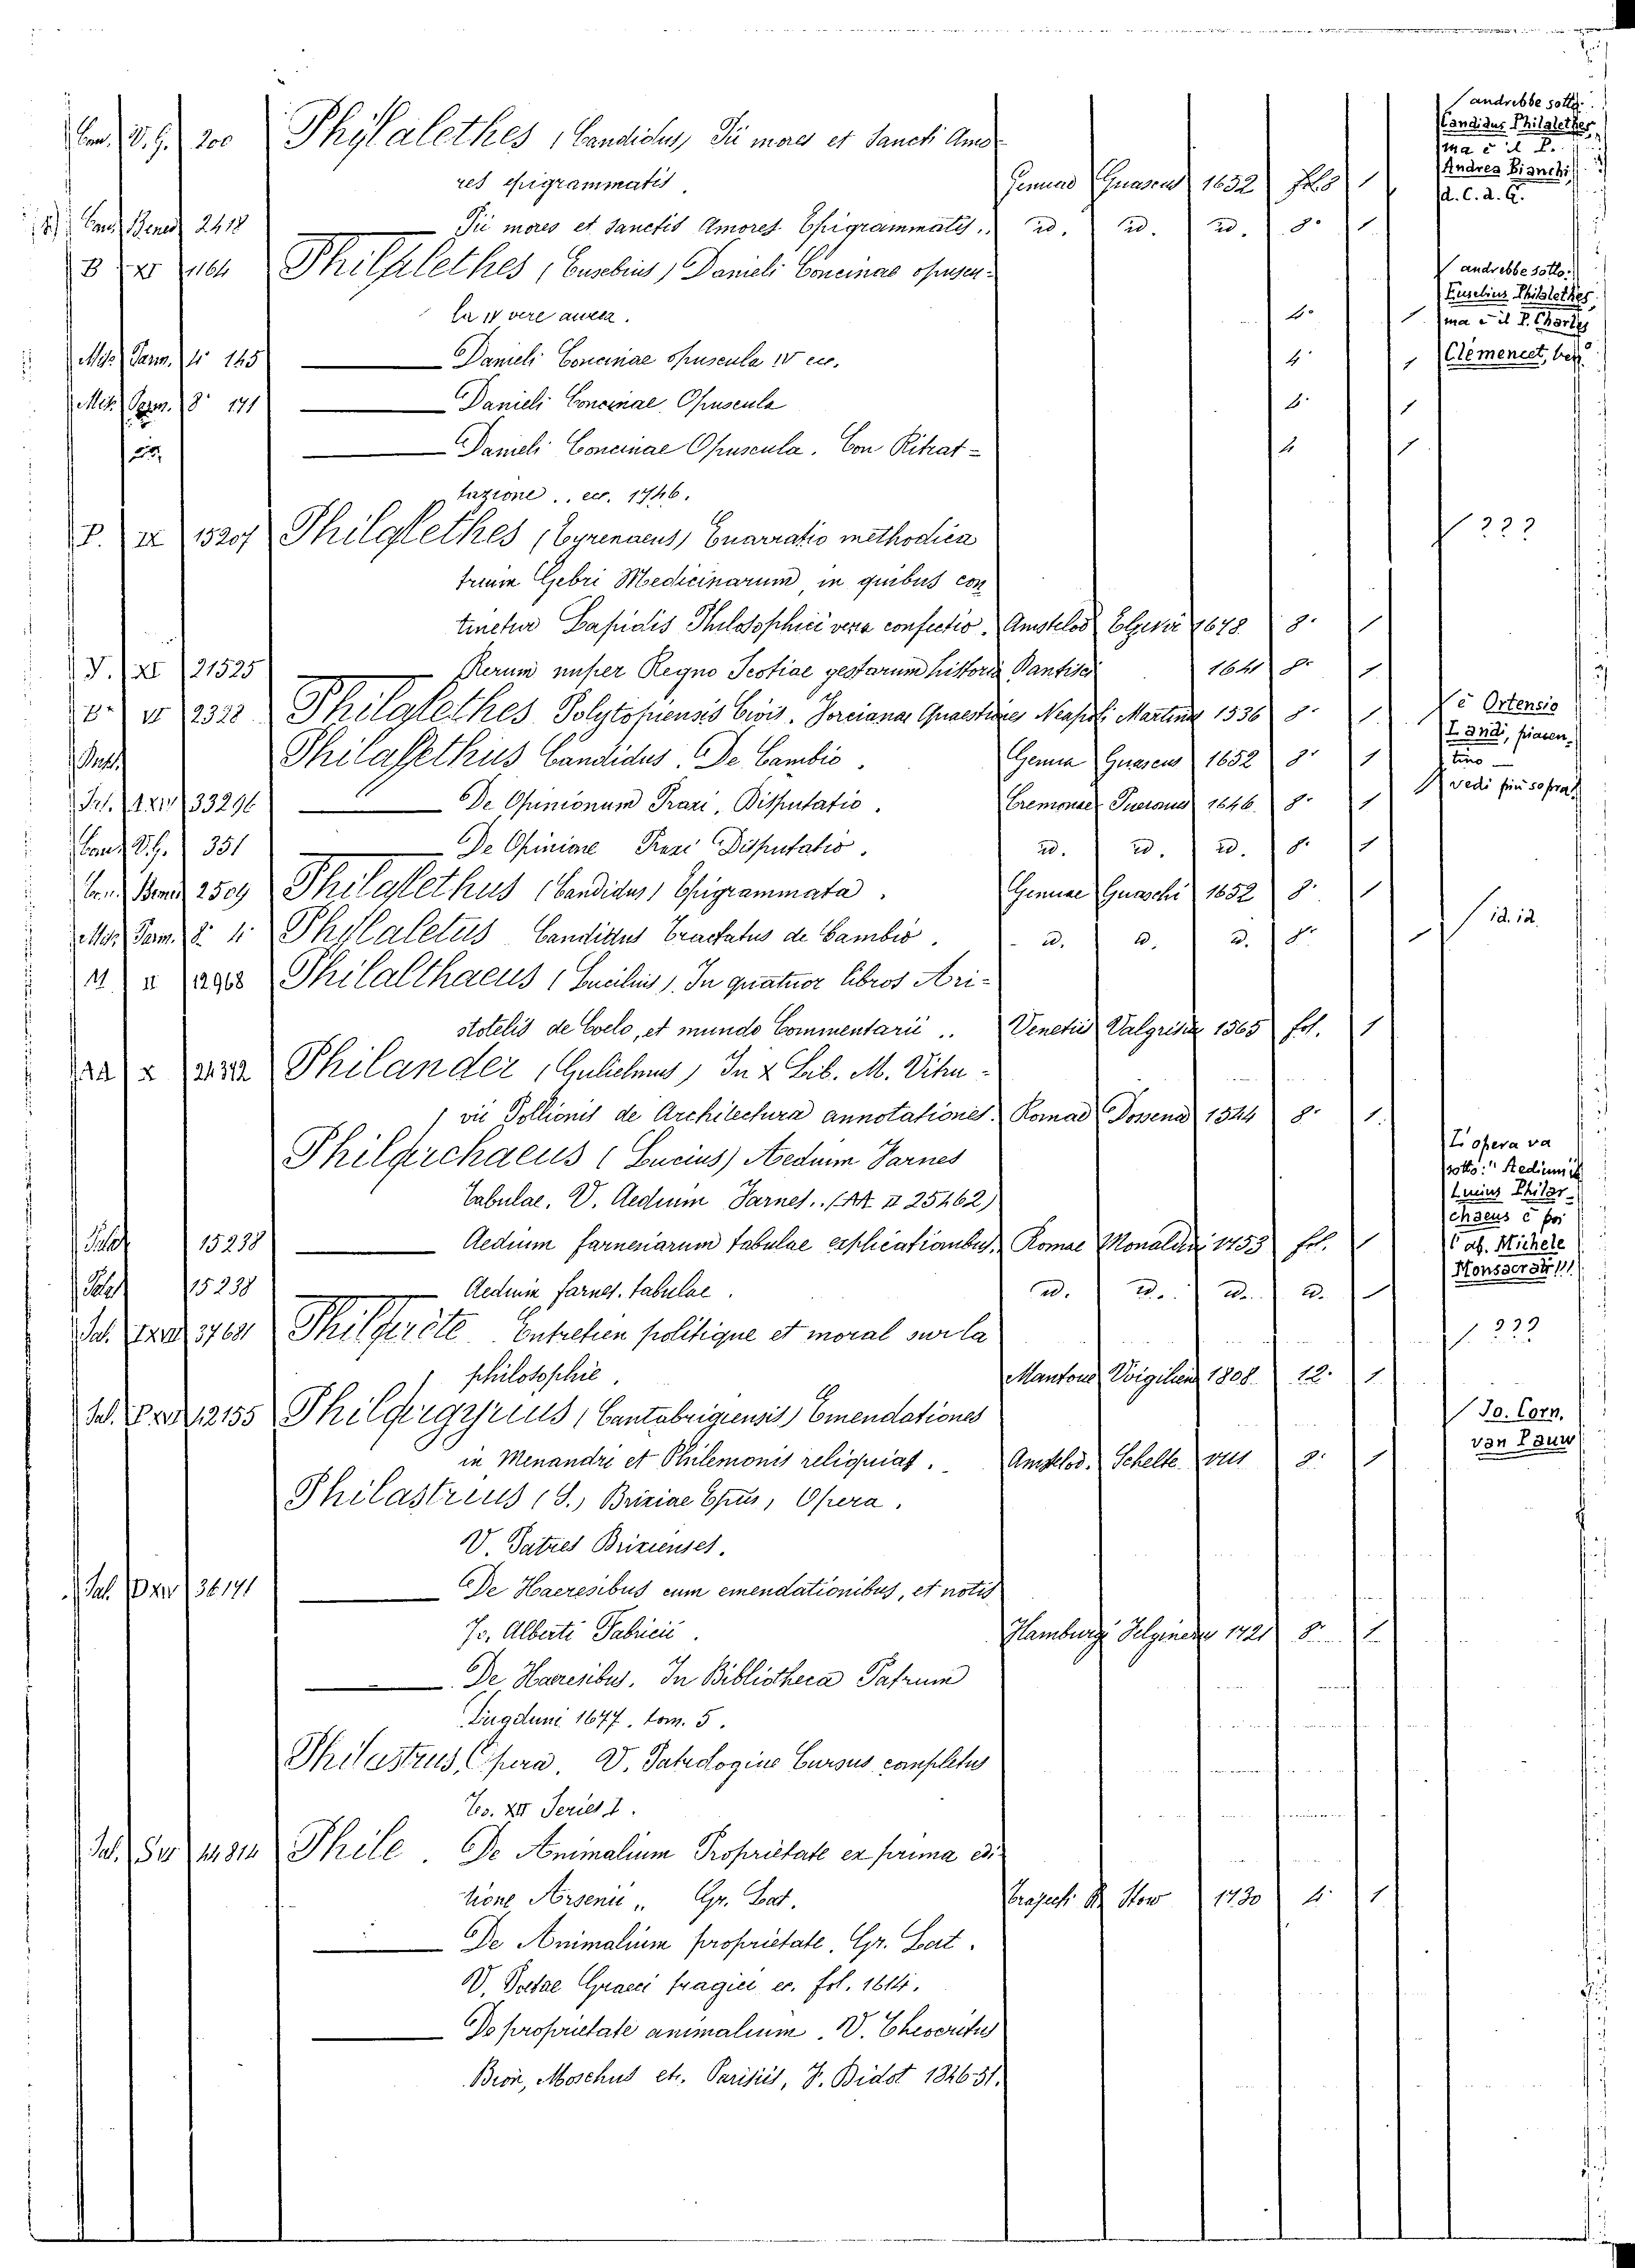 200 Phylalethes (Candidus) Pii mores et Sancti Amo-
res epigrammatis. Genuae Guascus 1652 fol. 8 1
Bened. 2418 Pii mores et Sanctis Amores Epigrammatis.. id. id. id. 8° 1
Philalethes (Eusebius) Danieli Concinae opuscu-
la IV vere aurea. 4°
Mis. Parm. 4° 145 Danieli Concinae Opuscula IV ecc. 4° 1
Mis. Parm. 8° 171 Danieli Concinae Opuscula 4° 1
id. Danieli Concinae Opuscula. Con Ritrat-
tazione.. ecc. 1746. 4° 1
P. IX 15207 Philalethes (Eyrenaeus) Enarratio methodica
trium Gebri Medicinarum, in quibus con
tinetur Lapidis Philosophici vera confectio. Amstelod. Elzevir 1678 8° 1
V. XI 21525 Rerum nuper Regno Scotiae gestarum historia Dantisci 1641 8° 1
B. VI 2328 Philalethes Polytopiensis Civis. Forcianae Quaestiones Neapoli Martinus 1536 8° 1
Philalethus Candidus. De Cambio. Genua Guascus 1652 8° 1
33296 De Opinionum Praxi, Disputatio. Cremonae Pueronus 1646 8° 1
351 De Opinione Praxi Disputatio. id. id. id. 8° 1
2509 Philalethus (Candidus) Epigrammata. Genuae Guaschi 1652 8° 1
Misc. Parm. 8° 4 Philaletus Candidus Tractatus de Cambio. id. id. id. 8° 1
M II 12968 Philalthaeus (Lucilius). In quatuor libros Ari-
stotelis de Coelo, et mundo Commentarii.. Venetiis Valgrisius 1565 fol. 1
AA X Philander (Gulielmus) In X Lib. M. Vitru-
vii Pollionis de Architectura annotationes. Romae Dossena 1544 8° 1.
Philarchaeus (Lucius) Aedium Farnes
Tabulae. V. Aedium Farnes.. (AA II 25462)
15238 Aedium farnesiarum tabulae explicationibus. Romae Monaldini 1753 fol. 1
15238 Aedium farnes. tabulae. id. id. id. id. 1
Sal. Philarète Entretien politique et moral sur la
philosophie. Mantoue Virgilien 1808 12° 1
Sal. 12155 Philargyrius (Cantabrigiensis) Emendationes
in Menandri et Philemonis reliquias. Amstelod. Schelte 1711 8° 1
Philastrius (S.) Brixiae Epus, Opera.
V. Patres Brixienses.
Sal. 36171 De Haeresibus cum emendationibus, et notis
Jo. Alberti Fabricii. Hamburgi Felginera 1721 8° 1
De Haeresibus. In Bibliotheca Patrum
Lugduni 1677. tom. 5.
Philastrus, Opera. V. Patrologiae Cursus completus
To. XII Series I.
Sal. Phile. De Animalium Proprietate ex prima edi
tione Arsenii.. Gr. Lat. Trajecti 1730 4° 1
De Animalium proprietate. Gr. Lat.
V. Poetae Graeci tragici ec. fol. 1614.
De proprietate animalium. V. Theocritus
Bion, Moschus etc. Parisiis, F. Didot 1846.51.
andrebbe sotto:
Candidus Philalethes,
ma è il P.
Andrea Bianchi
d. C. d. G.
andrebbe sotto:
Eusebius Philalethes,
ma è il P. Charles
Clémencet, ben.
???
è Ortensio
Landi, piacen-
tino —
vedi più sopra
id. id.
L'opera va
sotto: "Aedium
Lucius Philar-
chaeus è poi
l'ab. Michele
Monsacrati!!!
???
Jo. Corn.
van Pauw